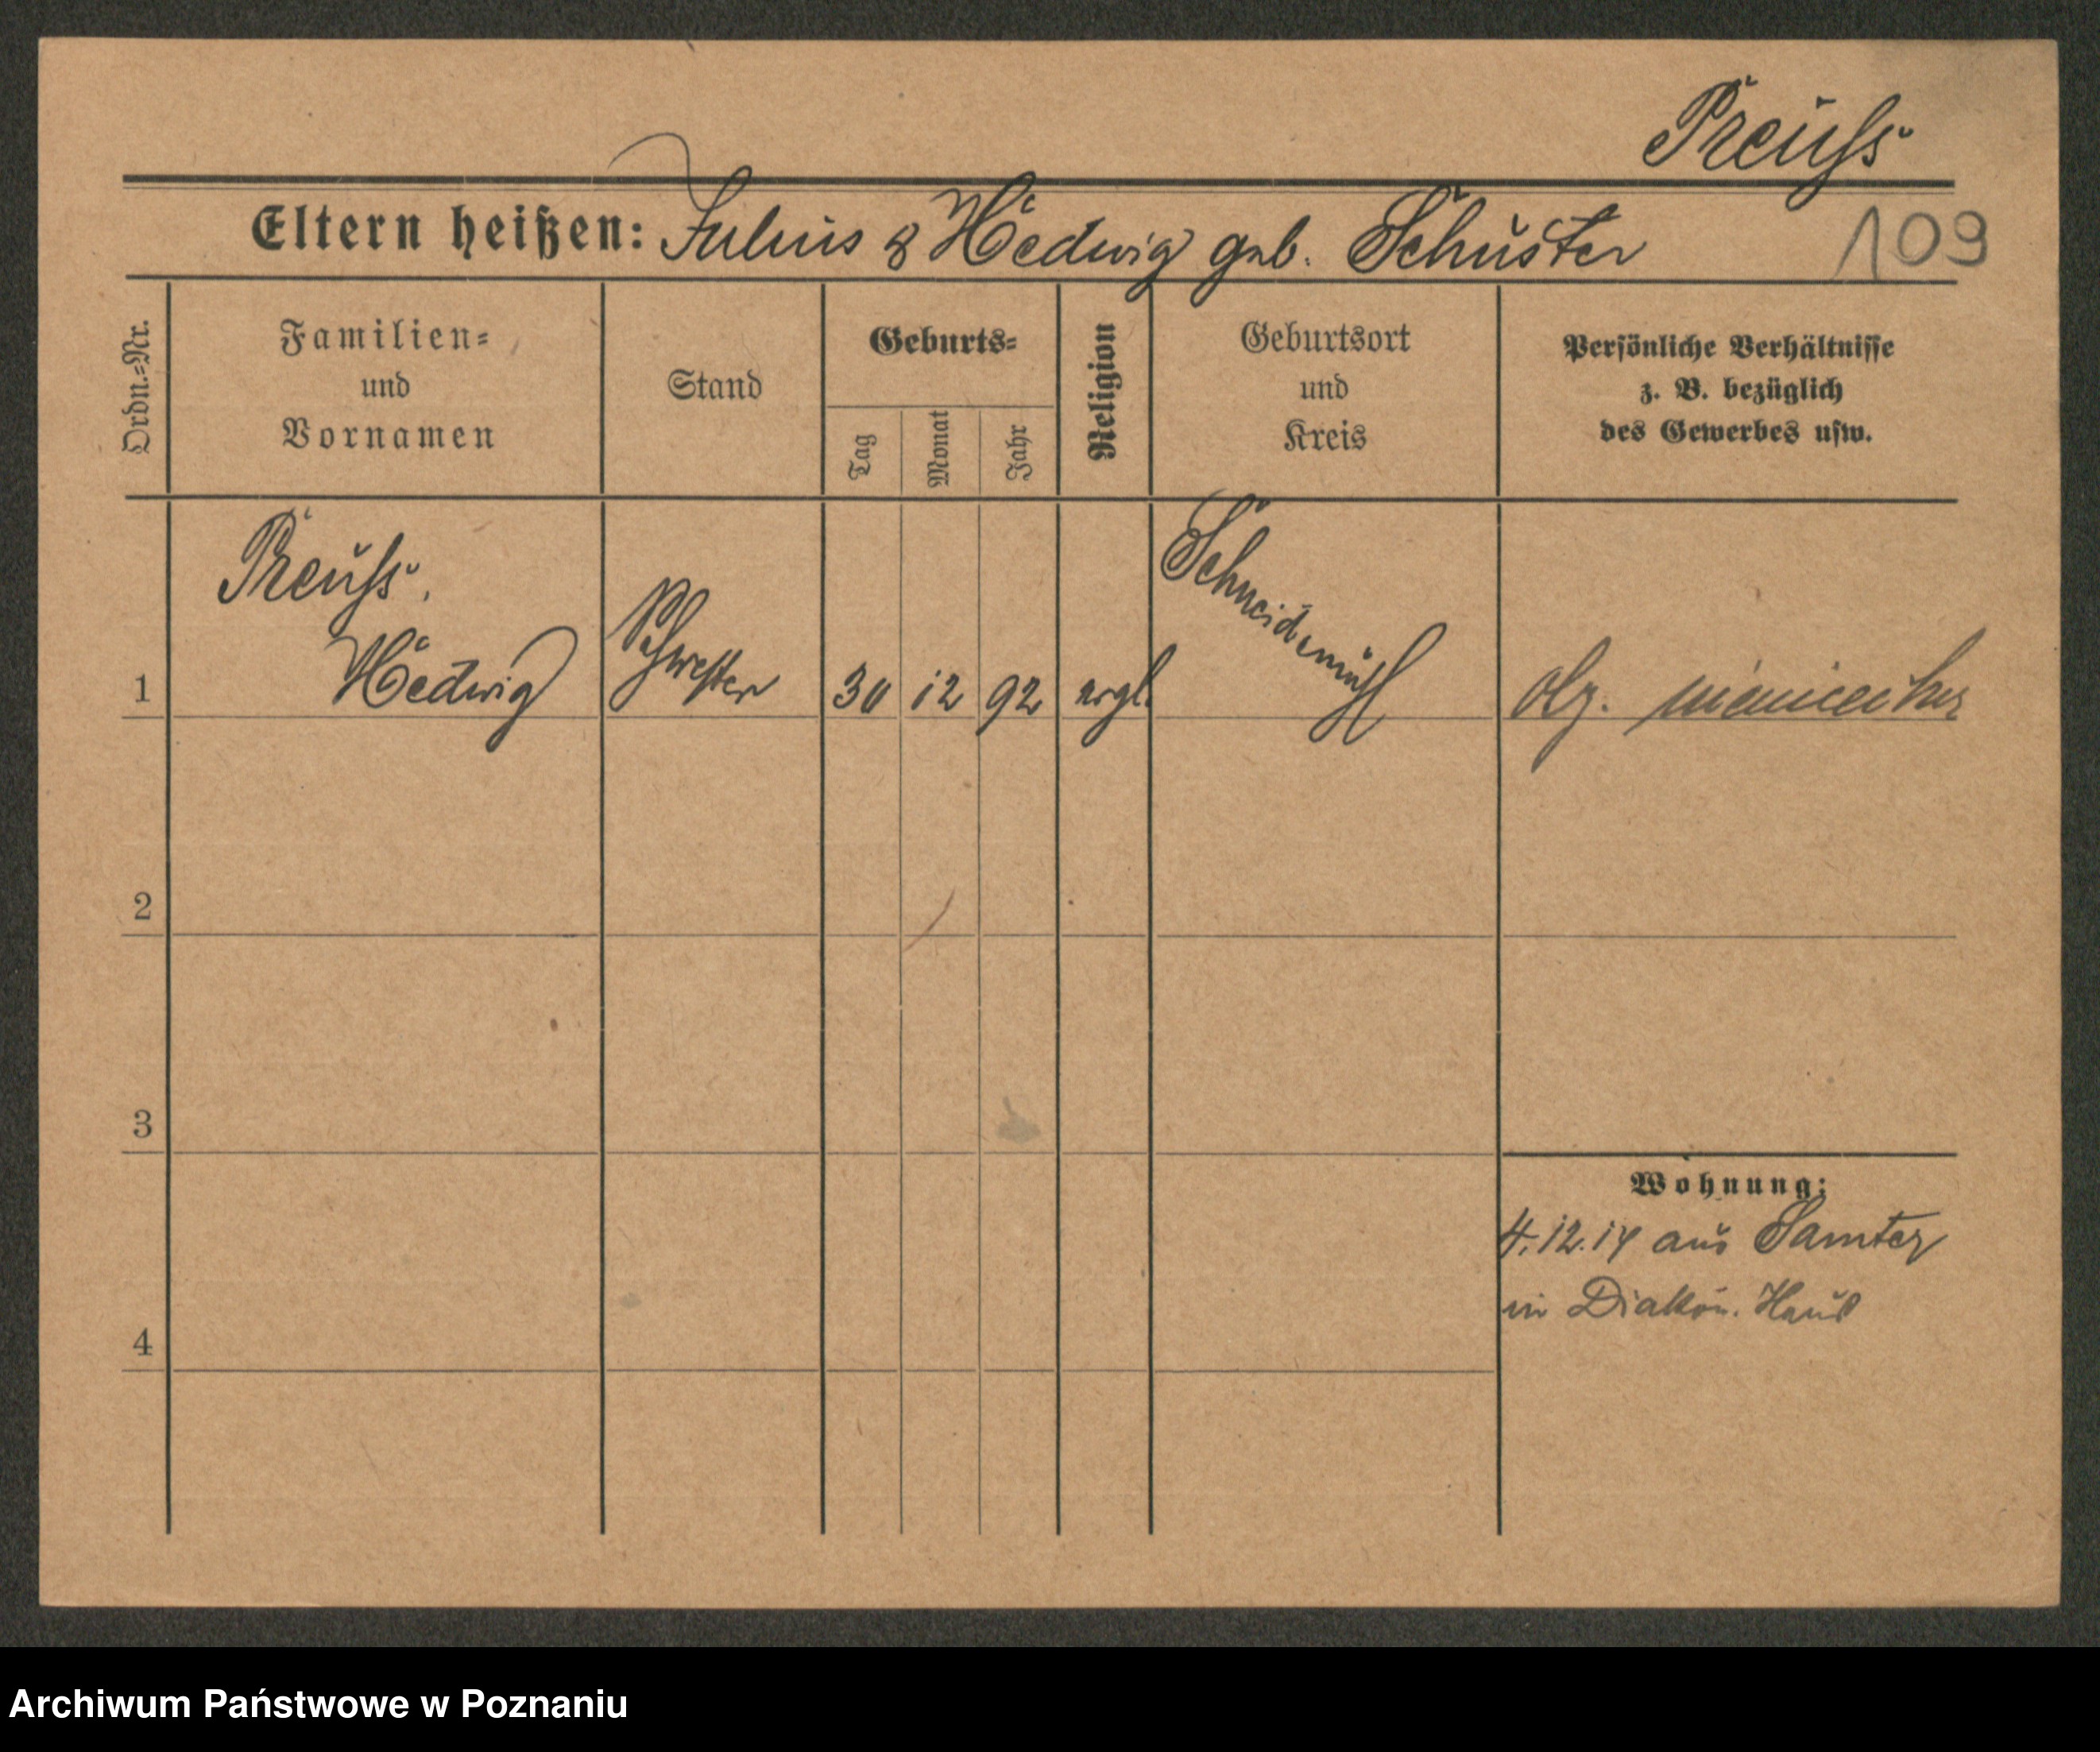 Preuſs
Eltern heißen: Julius & Hedwig geb. Schuster
109
Ordn.=Nr.
Familien=
und
Vornamen
Stand
Geburts=
Tag
Monat
Jahr
Religion
Geburtsort
und
Kreis
Persönliche Verhältnisse
z. B. bezüglich
des Gewerbes usw.
1
Preuſs,
Hedwig
Schwester
30
12
92
evgl.
Schneidemühl
2
3
4
Wohnung:
4.12.14 aus Samter
in Diakon. Haus
Archiwum Państwowe w Poznaniu